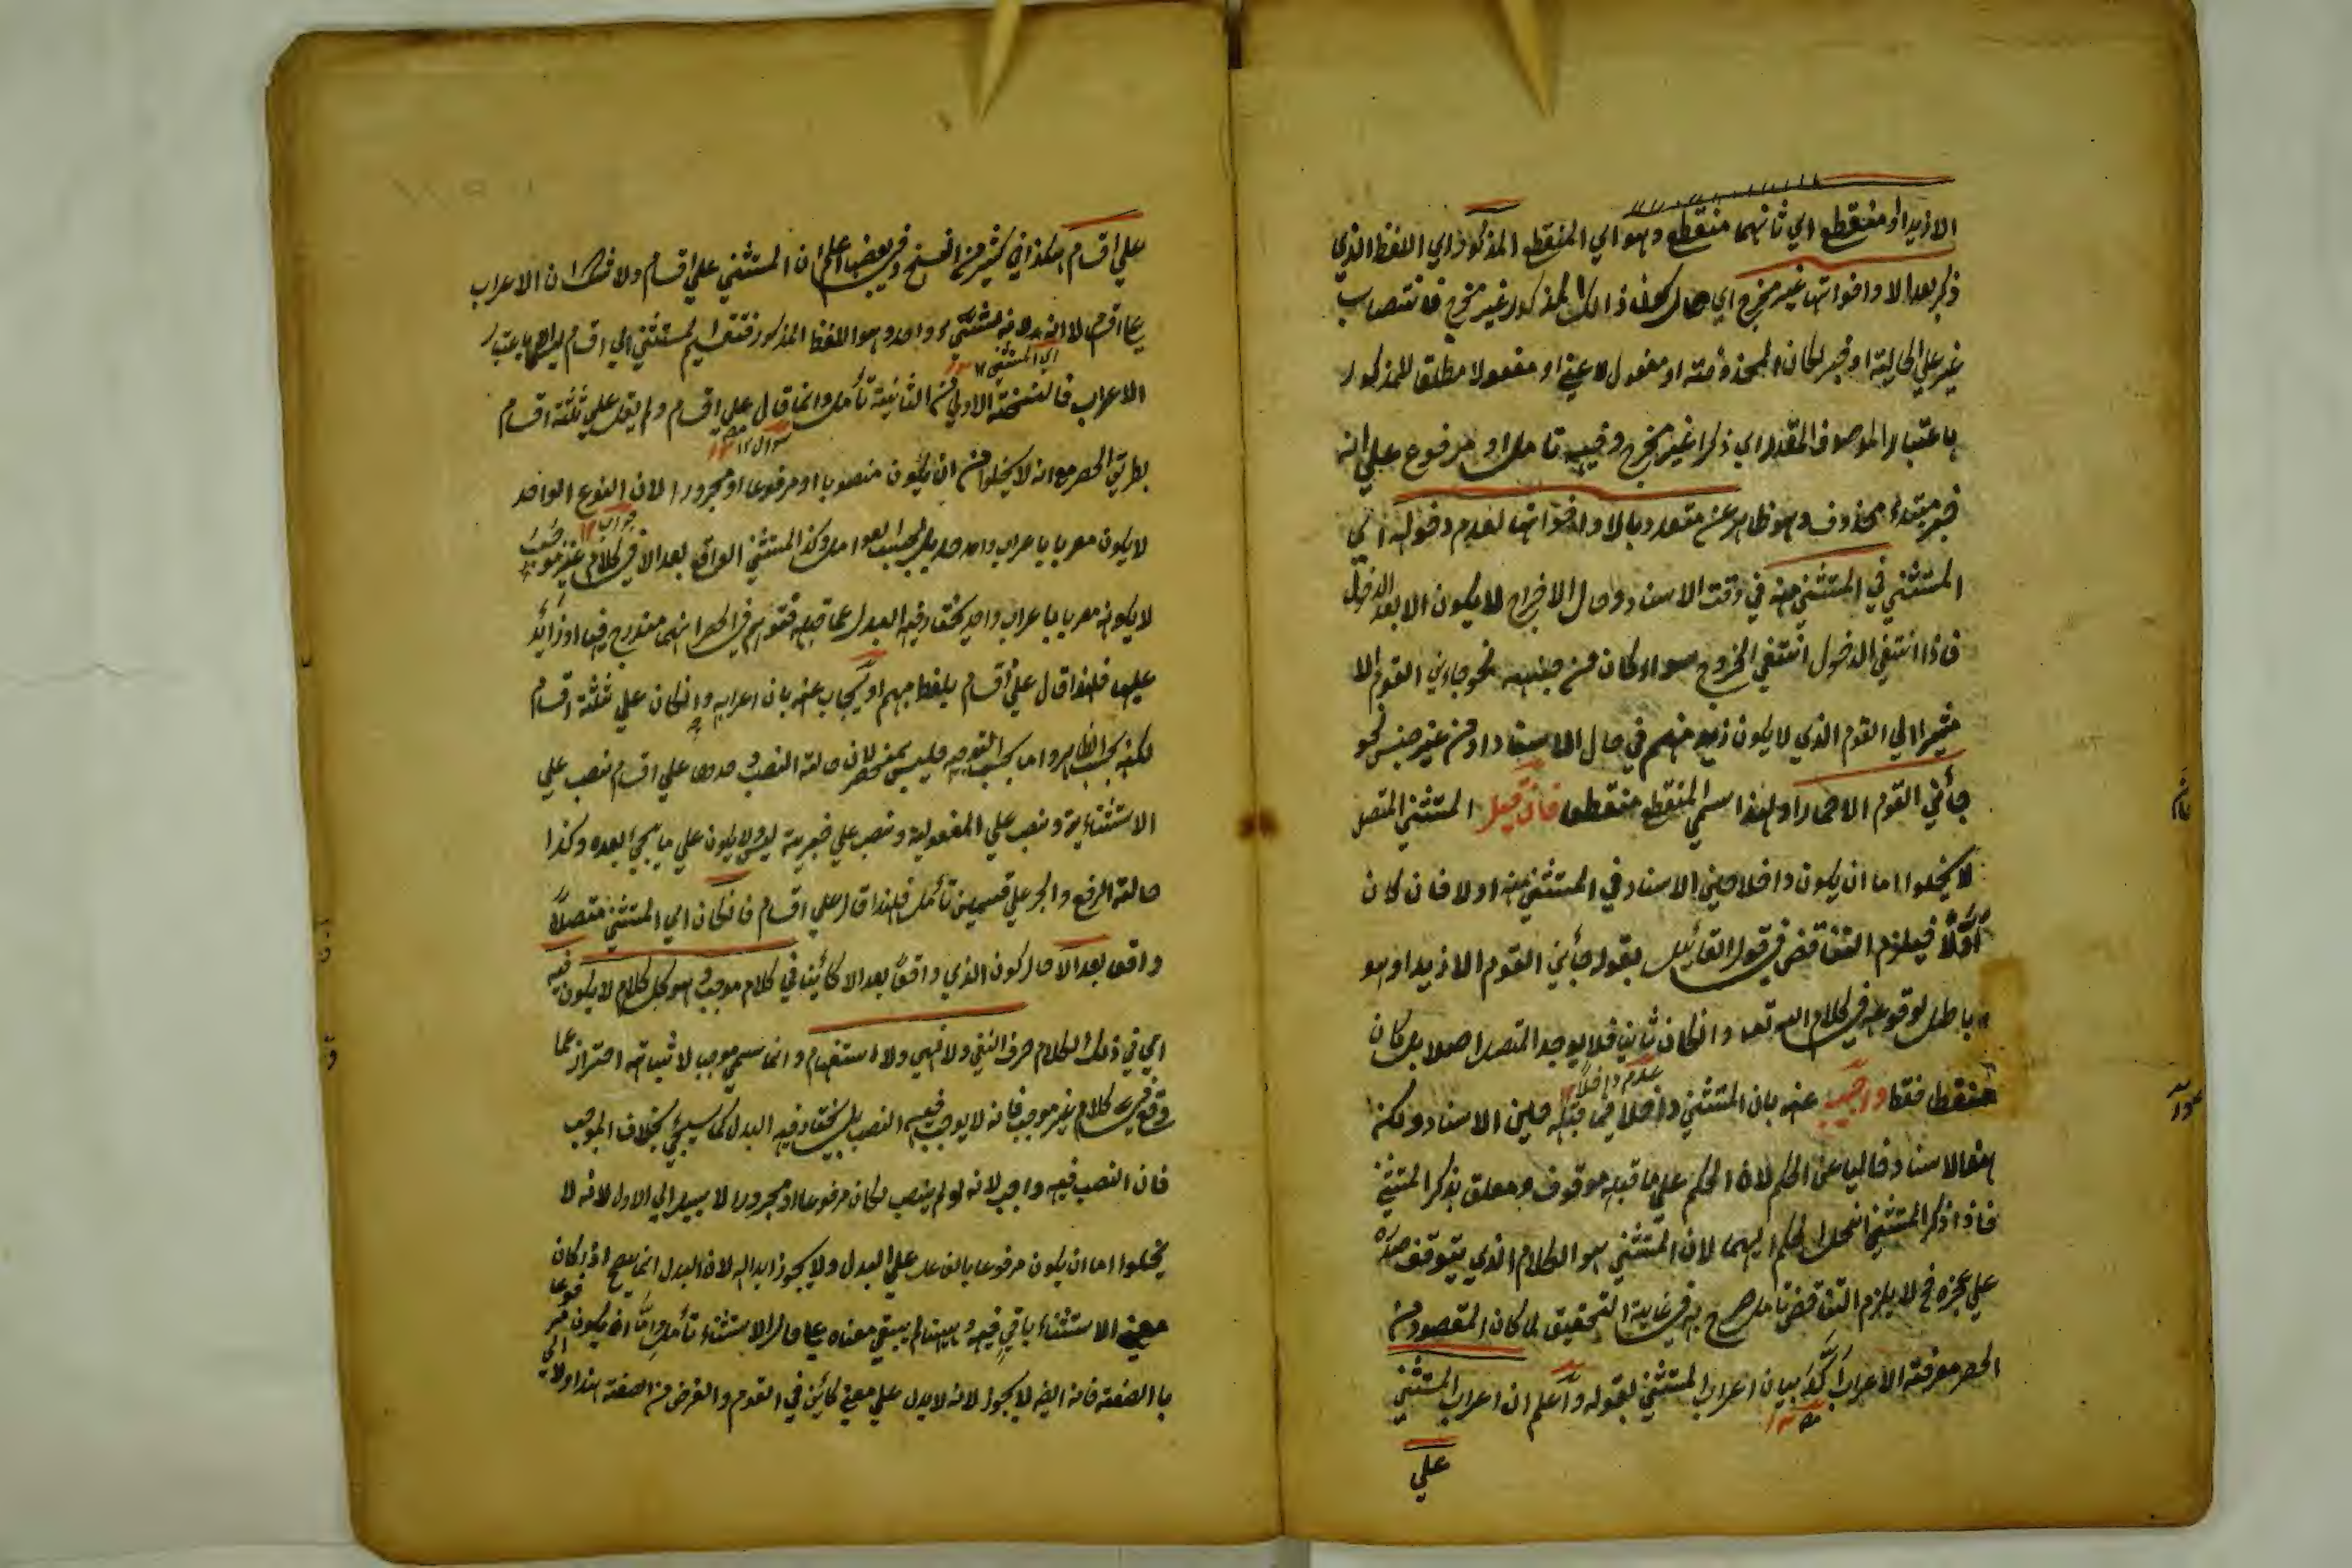 الا زيدا او منقطع اي ثانيهما منقطع وهو اي المنقطع المذكور اي اللفظ الذي
ذكر بعد الا واخواتها غير مخرج اي حال كون ذالك المذكور غير مخرج فانتصاب
غير علي الحالية او خبر لكان المحذوفة او مفعول لاعني او مفعولا مطلقا للمذكور
باعتبار الموصوف المقدر اي ذكرا غير مخرج وفيه تامل او مرفوع علي انه
خبر مبتدء محذوف وهو ظاهر عن متعدد بالا واخواتها لعدم دخوله اي
المستثني في المستثني منه في وقت الاسناد وحال الاخراج لا يكون الا بعد الدخول
فاذا انتفي الدخول انتفي الخروج سواء كان من جنسه نحو جاءني القوم الا
مشيرا الي القوم الذي لا يكون زيد منهم في حال الاسناد او من غير جنس نحو
جأني القوم الا حمارا ولهذا سمي المنقطع منقطعا فان قيل المستثني المتصل
لا يخلوا اما ان يكون داخلا حين الاسناد في المستثني منه او لا فان كان
اولا فيلزم التناقض في قول القائل بقوله جأني القوم الا زيدا وهو
باطل لوقوعه في كلام الله تعا وانكان ثانيا فلا يوجد المتصل اصلا بل كان
منقطعا فقط واجيب عنه بان المستثني داخلا فيما قبله حين الاسناد ولكنه
هذا الاسناد خاليا عن الحكم لان الحكم علي ما قبله موقوف ومعلق بذكر المستثني
فاذا ذكر المستثني انحل الحكم اليهما لان المستثني هو الكلام الذي يتوقف صدره
علي عجزه فح لا يلزم التناقض تامل صرح به في غاية التحقيق لما كان المقصود من
الحصر معرفة الاعراب بيان اعراب المستثني بقوله واعلم ان اعراب المستثني
علي
علي اقسام هكذا في كثير من النسخ وفي بعضها اعلم ان المستثني علي اقسام ولا شك ان الاعراب
علي اقسام لا المستثني واحد وهو اللفظ المذكور فتقسيم المستثني الي اقسام باعتبار
اي المستثني
الاعراب فالنسخة الاولي من الثانية تأمل وانما قال علي اقسام ولم يقل علي ثلثة اقسام
سوال
بطريق الحصر مع انه لا يخلوا من ان يكون منصوبا او مرفوعا او مجرورا لان النوع الواحد
جواب
لا يكون معربا باعراب واحد بل بحسب العوامل وكذا المستثني الواقع بعد الا في كلام غير موجب
لا يكون معربا باعراب واحد يختار فيه البدل عما قبله مندرج فيها او زائد
عليها فلهذا قال علي اقسام بلفظ مبهم او يجاب عنه بان اعرابه وانكان علي ثلثة اقسام
لكنه بحسب الظاهر واما بحسب التوجيه فليس بمنحصر لان حالة النصب وحدها علي اقسام نصب علي
الاستثنائية ونصب علي المفعولية ونصب علي خبرية ليس ولا يكون علي ما يجيئ بعده وكذا
حالة الرفع والجر علي قسمين تأمل فلهذا قال علي اقسام فانكان اي المستثني متصلا
واقعا بعد الا حال كون الذي واقعا بعد الا كائنا في كلام موجب وهو كل كلام لا يكون فيه
اي في ذلك الكلام حرف النفي ولا نهي ولا استفهام وانما سمي موجب لاثباته احتراز عما
وقع في كلام غير موجب فانه لا يوجب فيه النصب بل يختار فيه البدل كما سيجئ بخلاف الموجب
فان النصب فيه واجب لانه لو لم ينصب لكان مرفوعا او مجرورا لا سبيل الي الاول لانه لا
يخلوا اما ان يكون مرفوعا بالفاعل علي البدل ولا يجوز ابداله لان البدل انما يصح اذا كان
معني الاستثناء باقي فيه وههنا لم يبق معناه علي حال الاستثناء تأمل واما ان يكون مرفوعا
بالصفة فانه ايضا لا يجوز لانه لا يدل علي معني كائن في القوم والغرض من الصفة هذا ولا الي